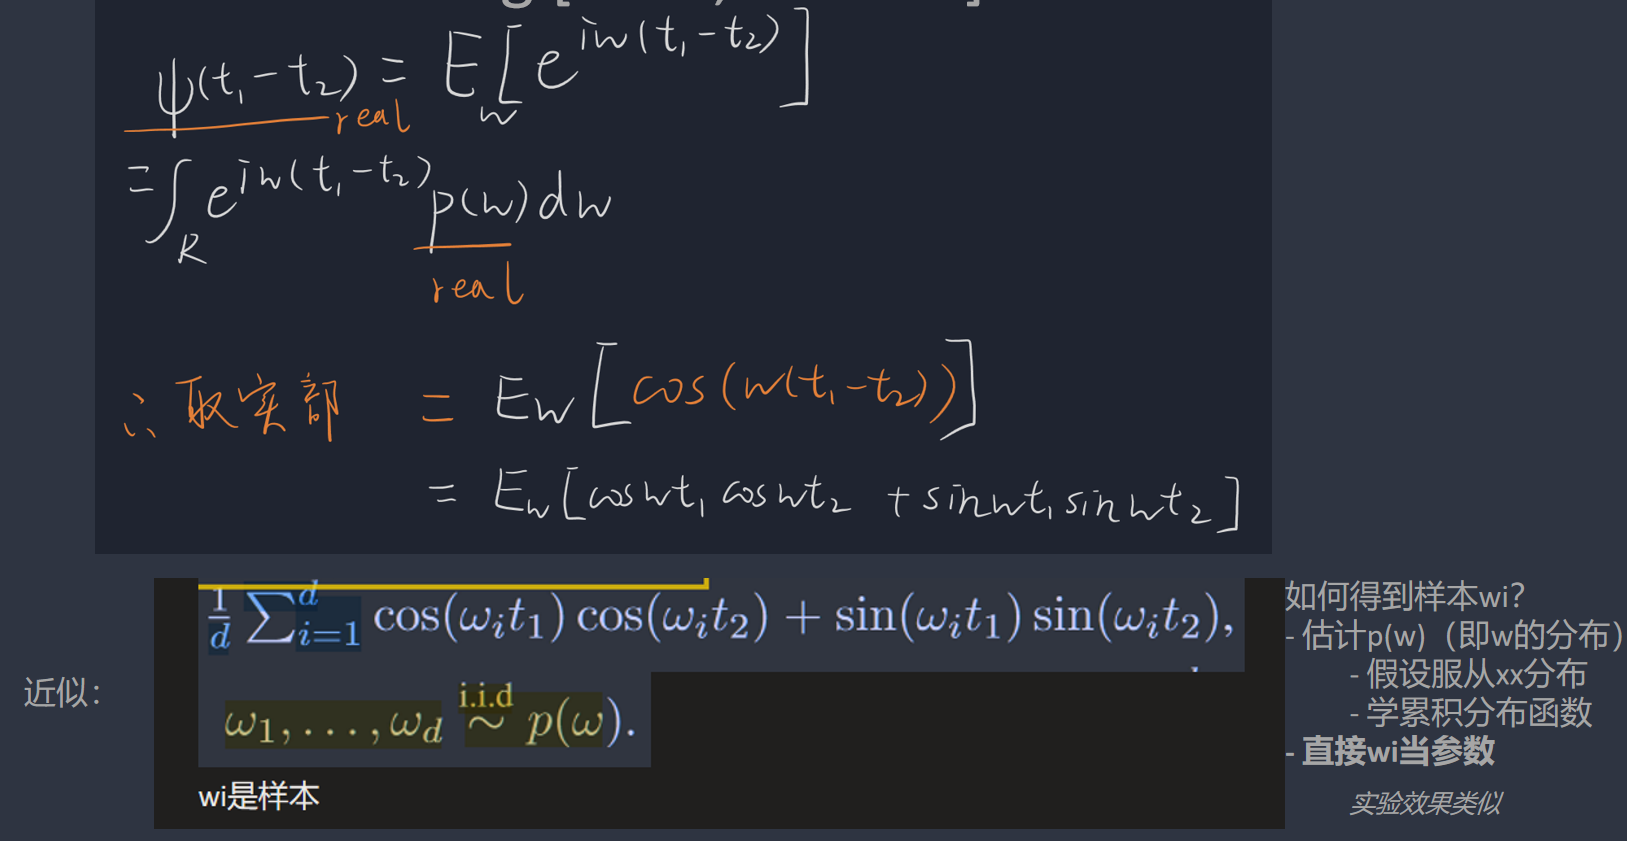 ψ(t₁-t₂) = E_w[e^{iw(t₁-t₂)}]
real
= ∫_R e^{iw(t₁-t₂)} p(w)dw
real
∴取实部 = E_w[cos(w(t₁-t₂))]
= E_w[coswt₁ coswt₂ + sinwt₁ sinwt₂]
近似：
1/d ∑_{i=1}^d cos(ω_i t₁) cos(ω_i t₂) + sin(ω_i t₁) sin(ω_i t₂),
ω₁, . . . , ω_d i.i.d ~ p(ω).
wi是样本
如何得到样本wi？
- 估计p(w)（即w的分布）
- 假设服从xx分布
- 学累积分布函数
- 直接wi当参数
实验效果类似